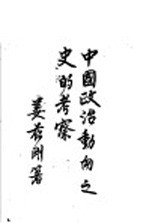 中國政治動向之
史的考察
姜蘊剛著